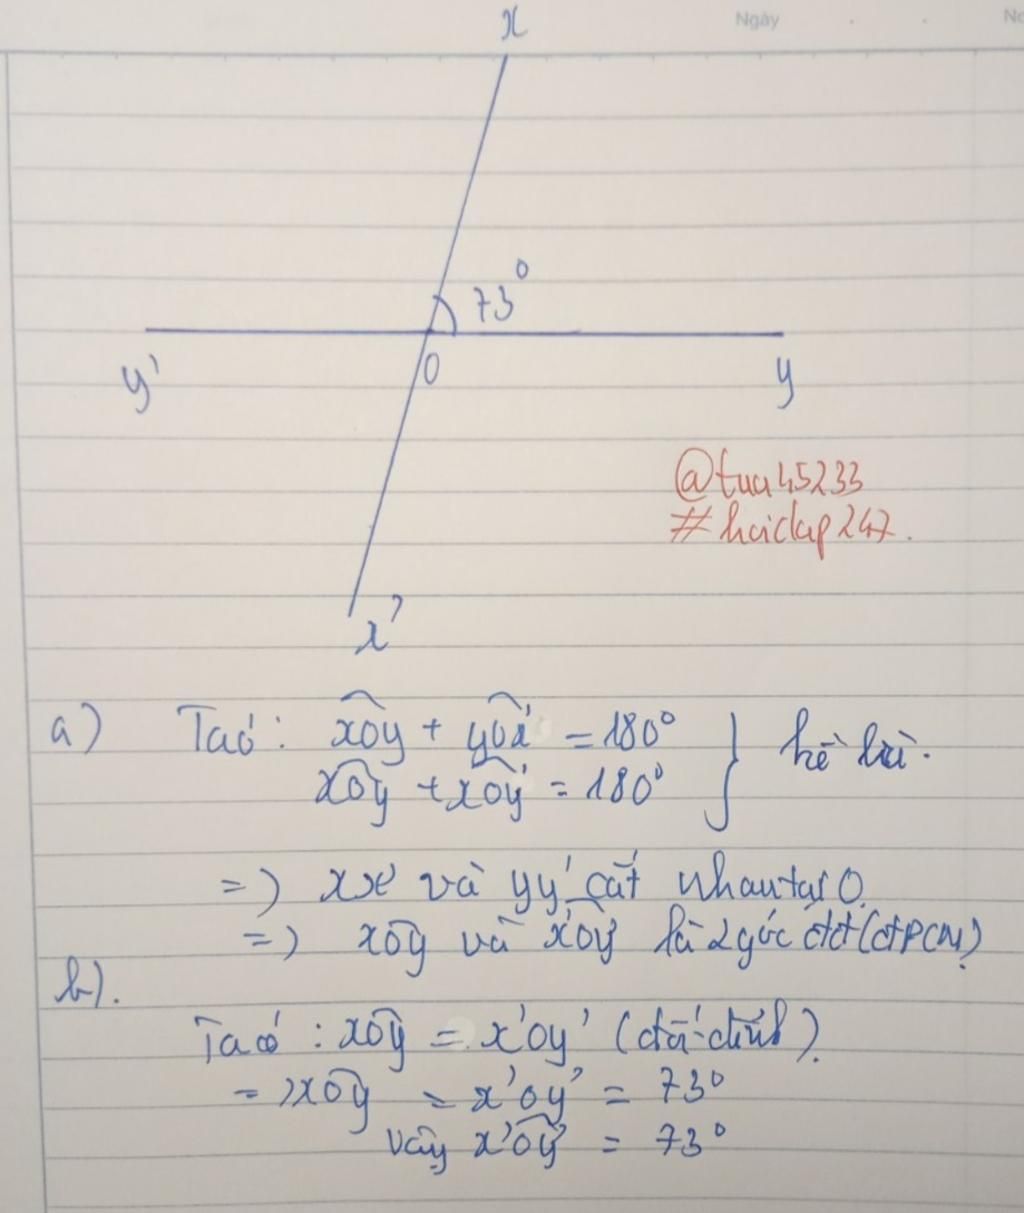 Ngày
No
x
73°
y'
O
y
@tua45233
#hoidap247.
x'
a) Ta có: xOy + yOx' = 180°
xOy + xOy' = 180° } kề bù.
=) xx' và yy' cắt nhau tại O.
=) xOy và x'Oy' là 2 góc đđ (đPCM)
b).
Ta có : xOy = x'Oy' (đối đỉnh)
=) xOy = x'Oy' = 73°
vậy x'Oy' = 73°